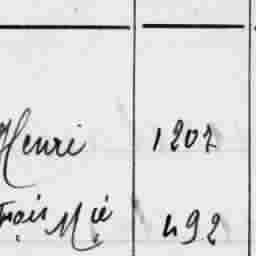 Henri 1207
Frçis Mie 492